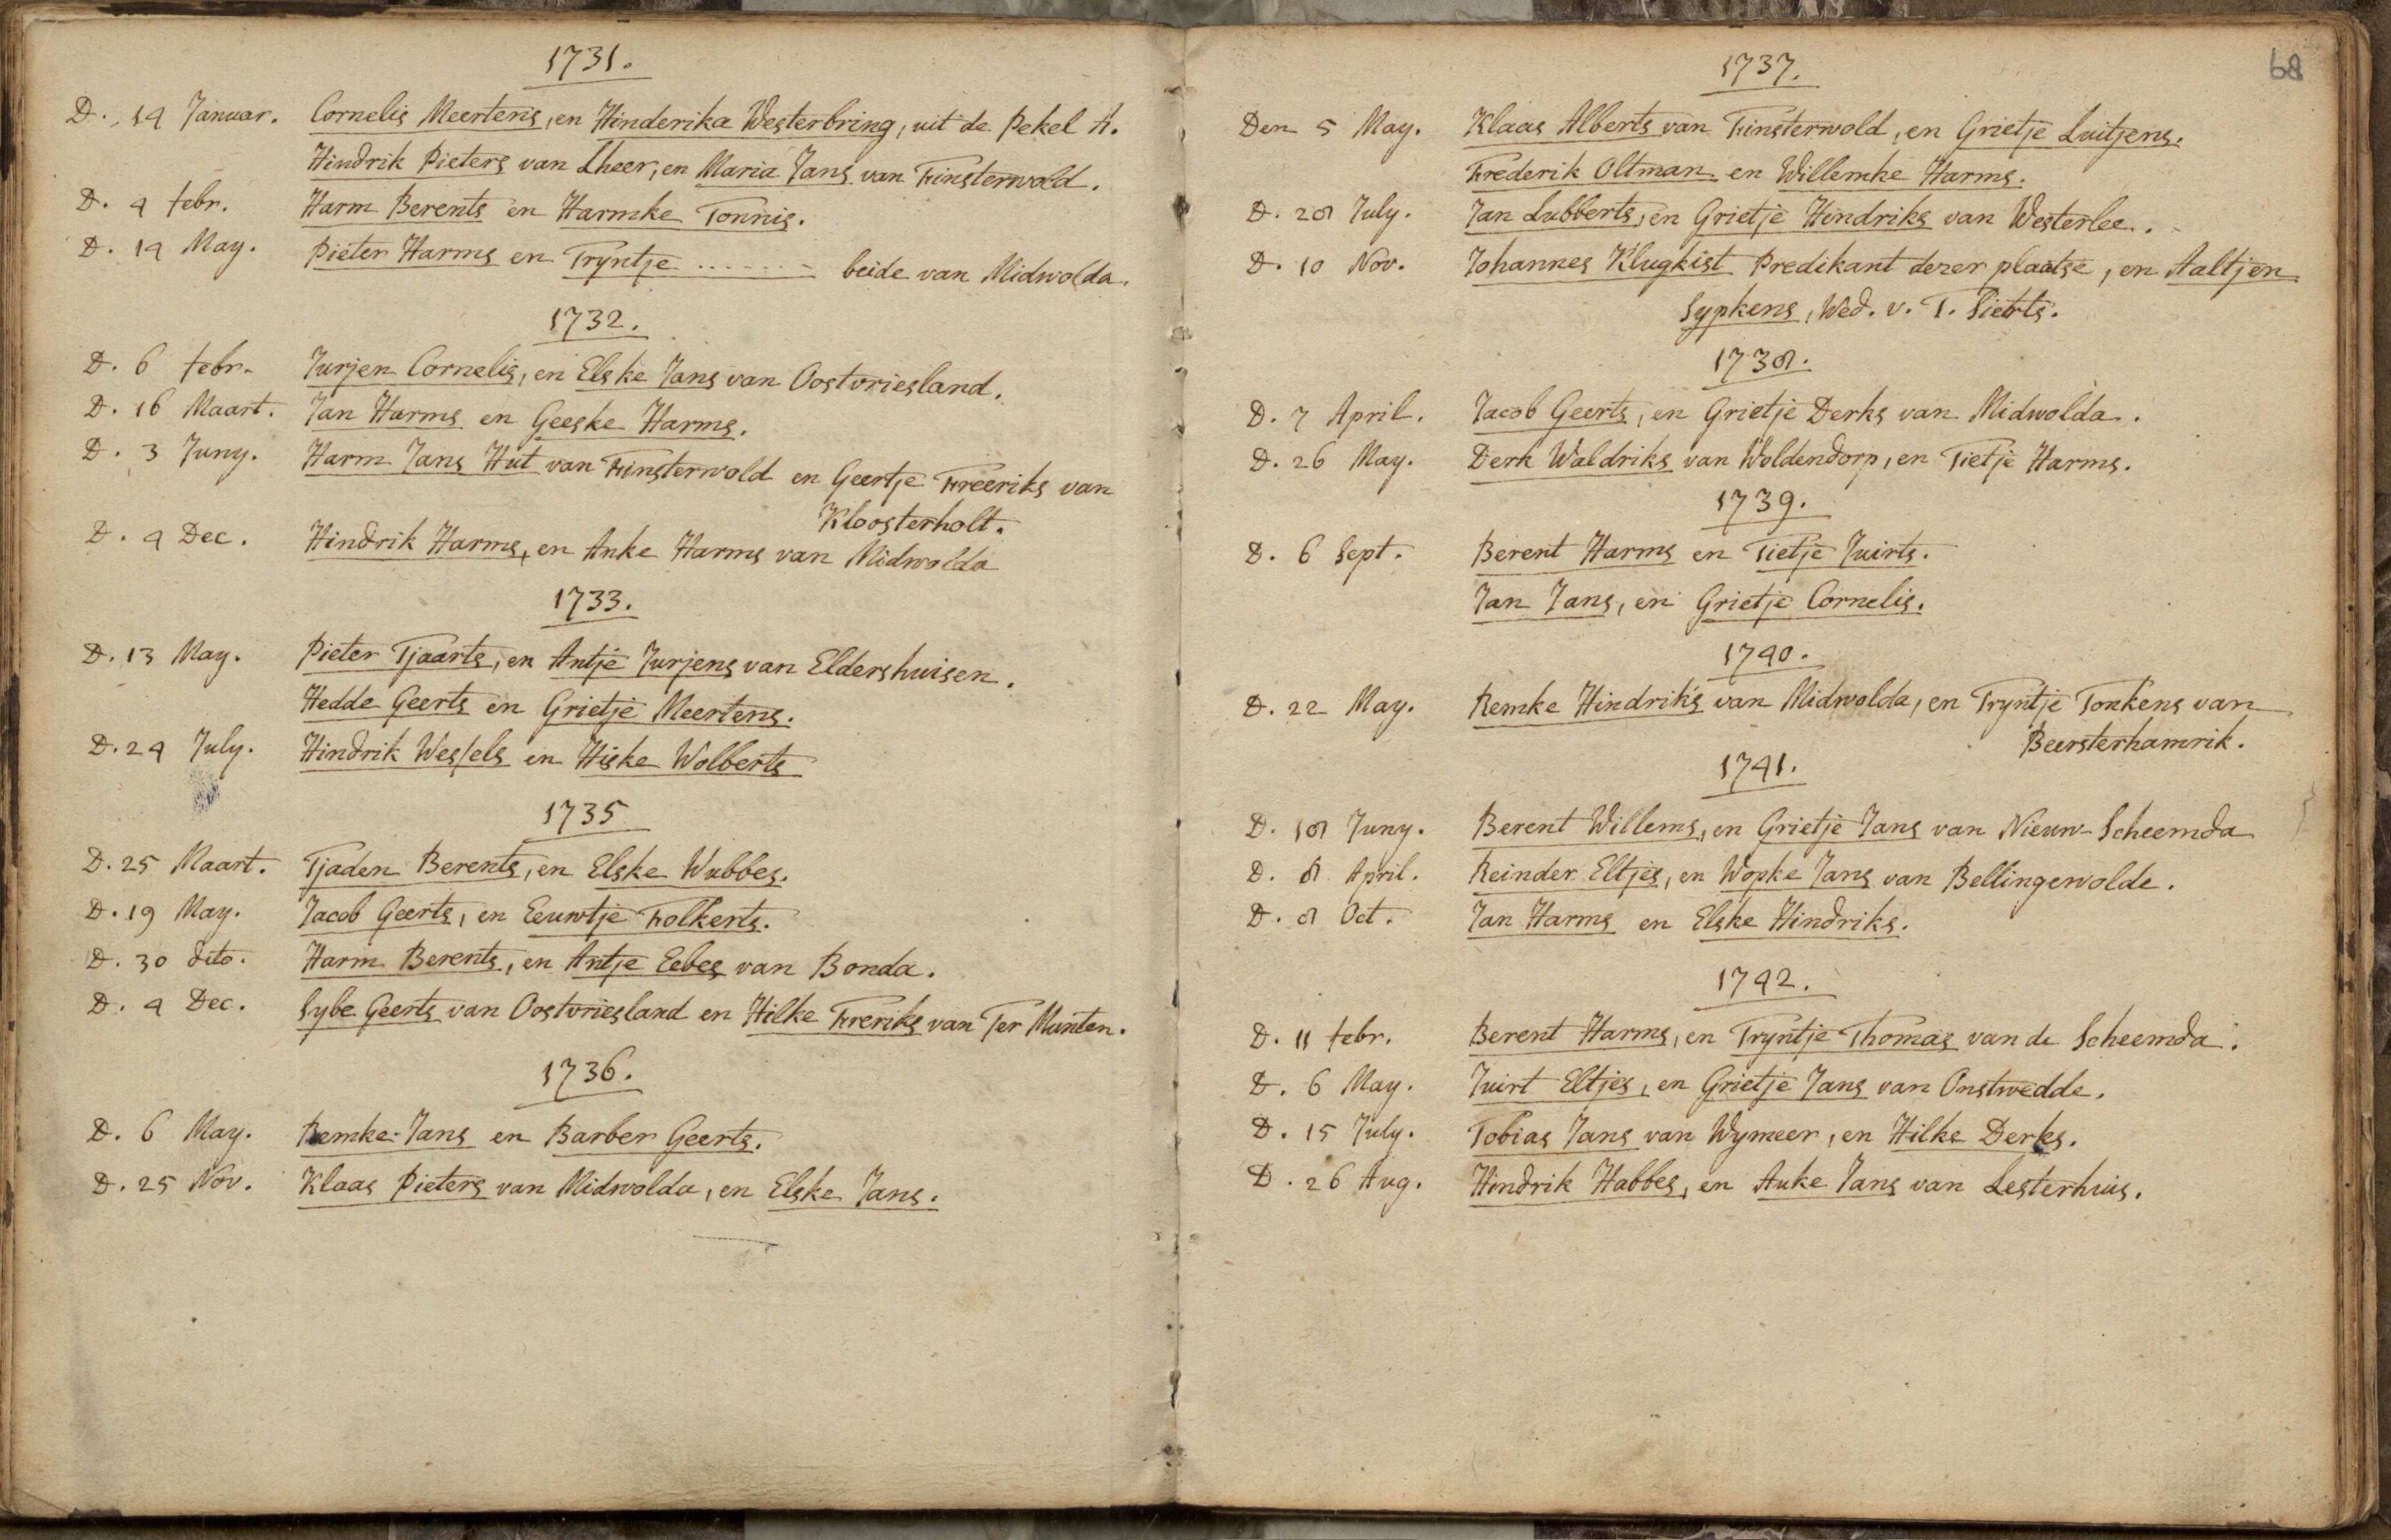 1731.
D. 14 Januar. Cornelis Meertens, en Hinderika Westerbring, uit de Pekel A.
Hindrik Pieters van Lheer, en Maria Jans van Finsterwold.
D. 4 febr. Harm Berents en Harmke Tonnis.
D. 14 May. Pieter Harms en Tryntje ....... beide van Midwolda.
1732.
D. 6 febr. Jurjen Cornelis, en Elske Jans van Oostvriesland.
D. 16 Maart. Jan Harms en Geeske Harms.
D. 3 Juny. Harm Jans Hut van Finsterwold en Geertje Freeriks van
Kloosterholt.
D. 4 Dec. Hindrik Harms, en Anke Harms van Midwolda
1733.
D. 13 May. Pieter Tjaarts, en Antje Jurjens van Eldershuisen.
Hedde Geerts en Grietje Meertens.
D. 24 July. Hindrik Wessels en Hiske Wolberts
1735
D. 25 Maart. Tjaden Berents, en Elske Wubbes.
D. 19 May. Jacob Geerts, en Eeuwtje Folkerts.
D. 30 dito. Harm Berents, en Antje Eebes van Bonda.
D. 4 Dec. Sybe Geerts van Oostvriesland en Hilke Freriks van Ter Munten.
1736.
D. 6 May. Remke Jans en Barber Geerts.
D. 25 Nov. Klaas Pieters van Midwolda, en Elske Jans.
68
1737.
Den 5 May. Klaas Alberts van Finsterwold, en Grietje Luitjens.
Frederik Oltman en Willemke Harms.
D. 28 July. Jan Lubberts, en Grietje Hindriks van Westerlee.
D. 10 Nov. Johannes Klugkist Predikant dezer plaatse, en Aaltjen
Sypkens, Wed. v. T. Sierts.
1738.
D. 7 April. Jacob Geerts, en Grietje Derks van Midwolda.
D. 26 May. Derk Waldriks van Woldendorp, en Tietje Harms.
1739.
D. 6 Sept. Berent Harms en Tietje Juirts.
Jan Jans, en Grietje Cornelis.
1740.
D. 22 May. Remke Hindriks van Midwolda, en Tryntje Tonkens van
Beersterhamrik.
1741.
D. 18 Juny. Berent Willems, en Grietje Jans van Nieuw-Scheemda
D. 8 April. Reinder Eltjes, en Wopke Jans van Bellingewolde.
D. 8 Oct. Jan Harms en Elske Hindriks.
1742.
D. 11 febr. Berent Harms, en Tryntje Thomas van de Scheemda.
D. 6 May. Juirt Eltjes, en Grietje Jans van Onstwedde.
D. 15 July. Tobias Jans van Wymeer, en Hilke Derks.
D. 26 Aug. Hindrik Habbes, en Auke Jans van Lesterhuis.